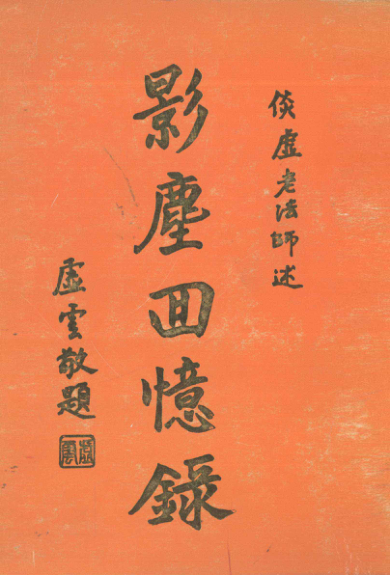 倓虛老法師述
影塵回憶錄
虛雲敬題
虛雲